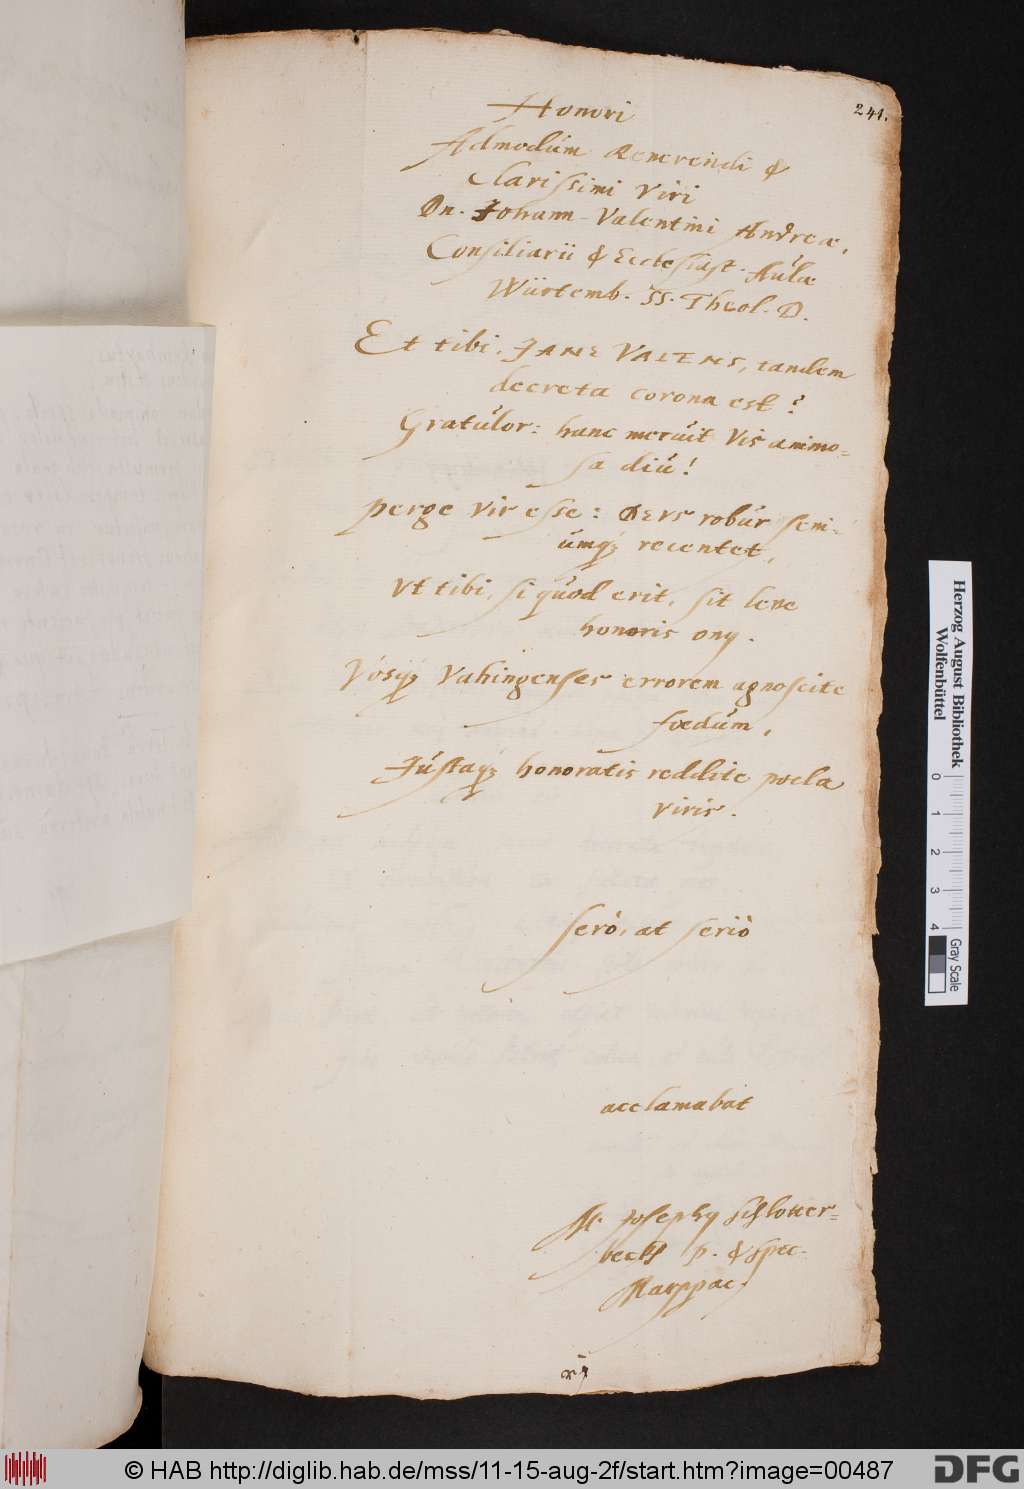 241.
Honori
Admodúm Reverendi &
Clarissimi Viri
Dn. Johann-Valentini Andreæ,
Consiliarii & Ecclesiast. Aúlæ
Würtemb. SS. Theol. D.
Et tibi, JANE VALENS, tandem
decreta corona est?
Gratúlor: hanc merúit Vis animo=
sa diú!
perge vir esse: DEVS robúr seni=
úmq; recentet,
Vt tibi, si qúod erit, sit leve
honoris ony.
Vósq; Vahingenses errorem agnoscite
foedúm,
Jústaq; honoratis reddite pocla
viris.
serò, at seriò
acclamabat
M. Josephy Schlotter=
beckh p. & Spec.
Marppac.
Herzog August Bibliothek
Wolfenbüttel
0 1 2 3 4
Gray Scale
© HAB http://diglib.hab.de/mss/11-15-aug-2f/start.htm?image=00487
DFG